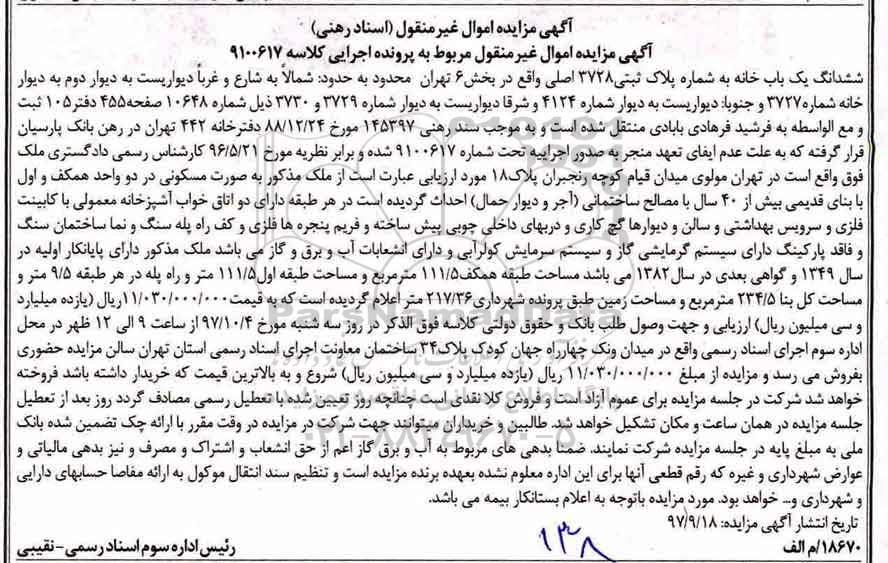 آگهی مزایده اموال غیرمنقول (اسناد رهنی)
آگهی مزایده اموال غیرمنقول مربوط به پرونده اجرایی کلاسه ۹۱۰۰۶۱۷
ششدانگ یک باب خانه به شماره پلاک ثبتی۳۷۲۸ اصلی واقع در بخش۶ تهران محدود به حدود: شمالاً به شارع و غرباً دیواریست به دیوار دوم به دیوار
خانه شماره۳۷۲۷ و جنوبا: دیواریست به دیوار شماره ۴۱۲۴ و شرقا دیواریست به دیوار شماره ۳۷۲۹ و ۳۷۳۰ ذیل شماره ۱۰۶۴۸ صفحه۴۵۵ دفتر۱۰۵ ثبت
و مع الواسطه به فرشید فرهادی بابادی منتقل شده است و به موجب سند رهنی ۱۴۵۳۹۷ مورخ ۸۸/۱۲/۲۴ دفترخانه ۴۴۲ تهران در رهن بانک پارسیان
قرار گرفته که به علت عدم ایفای تعهد منجر به صدور اجراییه تحت شماره ۹۱۰۰۶۱۷ شده و برابر نظریه مورخ ۹۶/۵/۲۱ کارشناس رسمی دادگستری ملک
فوق واقع است در تهران مولوی میدان قیام کوچه رنجبران پلاک۱۸ مورد ارزیابی عبارت است از ملک مذکور به صورت مسکونی در دو واحد همکف و اول
با بنای قدیمی بیش از ۴۰ سال با مصالح ساختمانی (آجر و دیوار حمال) احداث گردیده است در هر طبقه دارای دو اتاق خواب آشپزخانه معمولی با کابینت
فلزی و سرویس بهداشتی و سالن و دیوارها گچ کاری و دربهای داخلی چوبی پیش ساخته و فریم پنجره ها فلزی و کف راه پله سنگ و نما ساختمان سنگ
و فاقد پارکینگ دارای سیستم گرمایشی گاز و سیستم سرمایش کولرآبی و دارای انشعابات آب و برق و گاز می باشد ملک مذکور دارای پایانکار اولیه در
سال ۱۳۴۹ و گواهی بعدی در سال۱۳۸۲ می باشد مساحت طبقه همکف۱۱۱/۵ مترمربع و مساحت طبقه اول۱۱۱/۵ متر و راه پله در هر طبقه ۹/۵ متر و
مساحت کل بنا ۲۳۴/۵ مترمربع و مساحت زمین طبق پرونده شهرداری۲۱۷/۳۶ متر اعلام گردیده است که به قیمت۱۱/۰۳۰/۰۰۰/۰۰۰ریال (یازده میلیارد
و سی میلیون ریال) ارزیابی و جهت وصول طلب بانک و حقوق دولتی کلاسه فوق الذکر در روز سه شنبه مورخ ۹۷/۱۰/۴ از ساعت ۹ الی ۱۲ ظهر در محل
اداره سوم اجرای اسناد رسمی واقع در میدان ونک چهارراه جهان کودک پلاک۳۴ ساختمان معاونت اجرای اسناد رسمی استان تهران سالن مزایده حضوری
بفروش می رسد و مزایده از مبلغ ۱۱/۰۳۰/۰۰۰/۰۰۰ ریال (یازده میلیارد و سی میلیون ریال) شروع و به بالاترین قیمت که خریدار داشته باشد فروخته
خواهد شد شرکت در جلسه مزایده برای عموم آزاد است و فروش کلا نقدی است چنانچه روز تعیین شده با تعطیل رسمی مصادف گردد روز بعد از تعطیل
جلسه مزایده در همان ساعت و مکان تشکیل خواهد شد. طالبین و خریداران میتوانند جهت شرکت در مزایده در وقت مقرر با ارائه چک تضمین شده بانک
ملی به مبلغ پایه در جلسه مزایده شرکت نمایند. ضمنا بدهی های مربوط به آب و برق گاز اعم از حق انشعاب و اشتراک و مصرف و نیز بدهی مالیاتی و
عوارض شهرداری و غیره که رقم قطعی آنها برای این اداره معلوم نشده بعهده برنده مزایده است و تنظیم سند انتقال موکول به ارائه مفاصا حسابهای دارایی
و شهرداری و... خواهد بود. مورد مزایده باتوجه به اعلام بستانکار بیمه می باشد.
تاریخ انتشار آگهی مزایده: ۹۷/۹/۱۸
۱۸۶۷۰/م الف
رئیس اداره سوم اسناد رسمی-نقیبی
۱۳۸
ParsNamadData
۰۲۱-۸۸۳۴۹۶۷۰-۵